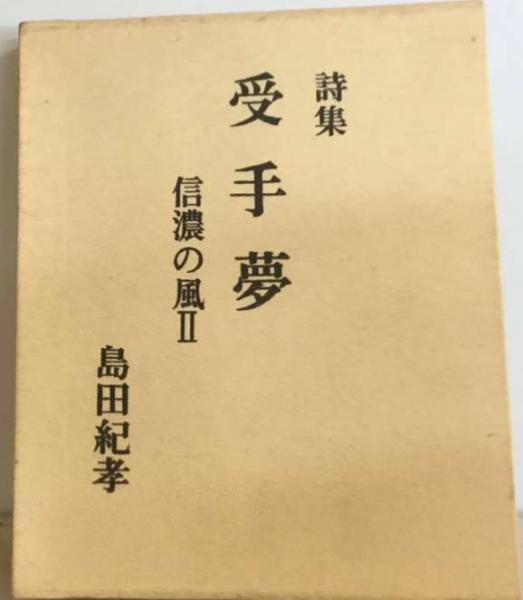 詩集
受手夢
信濃の風Ⅱ
島田紀孝